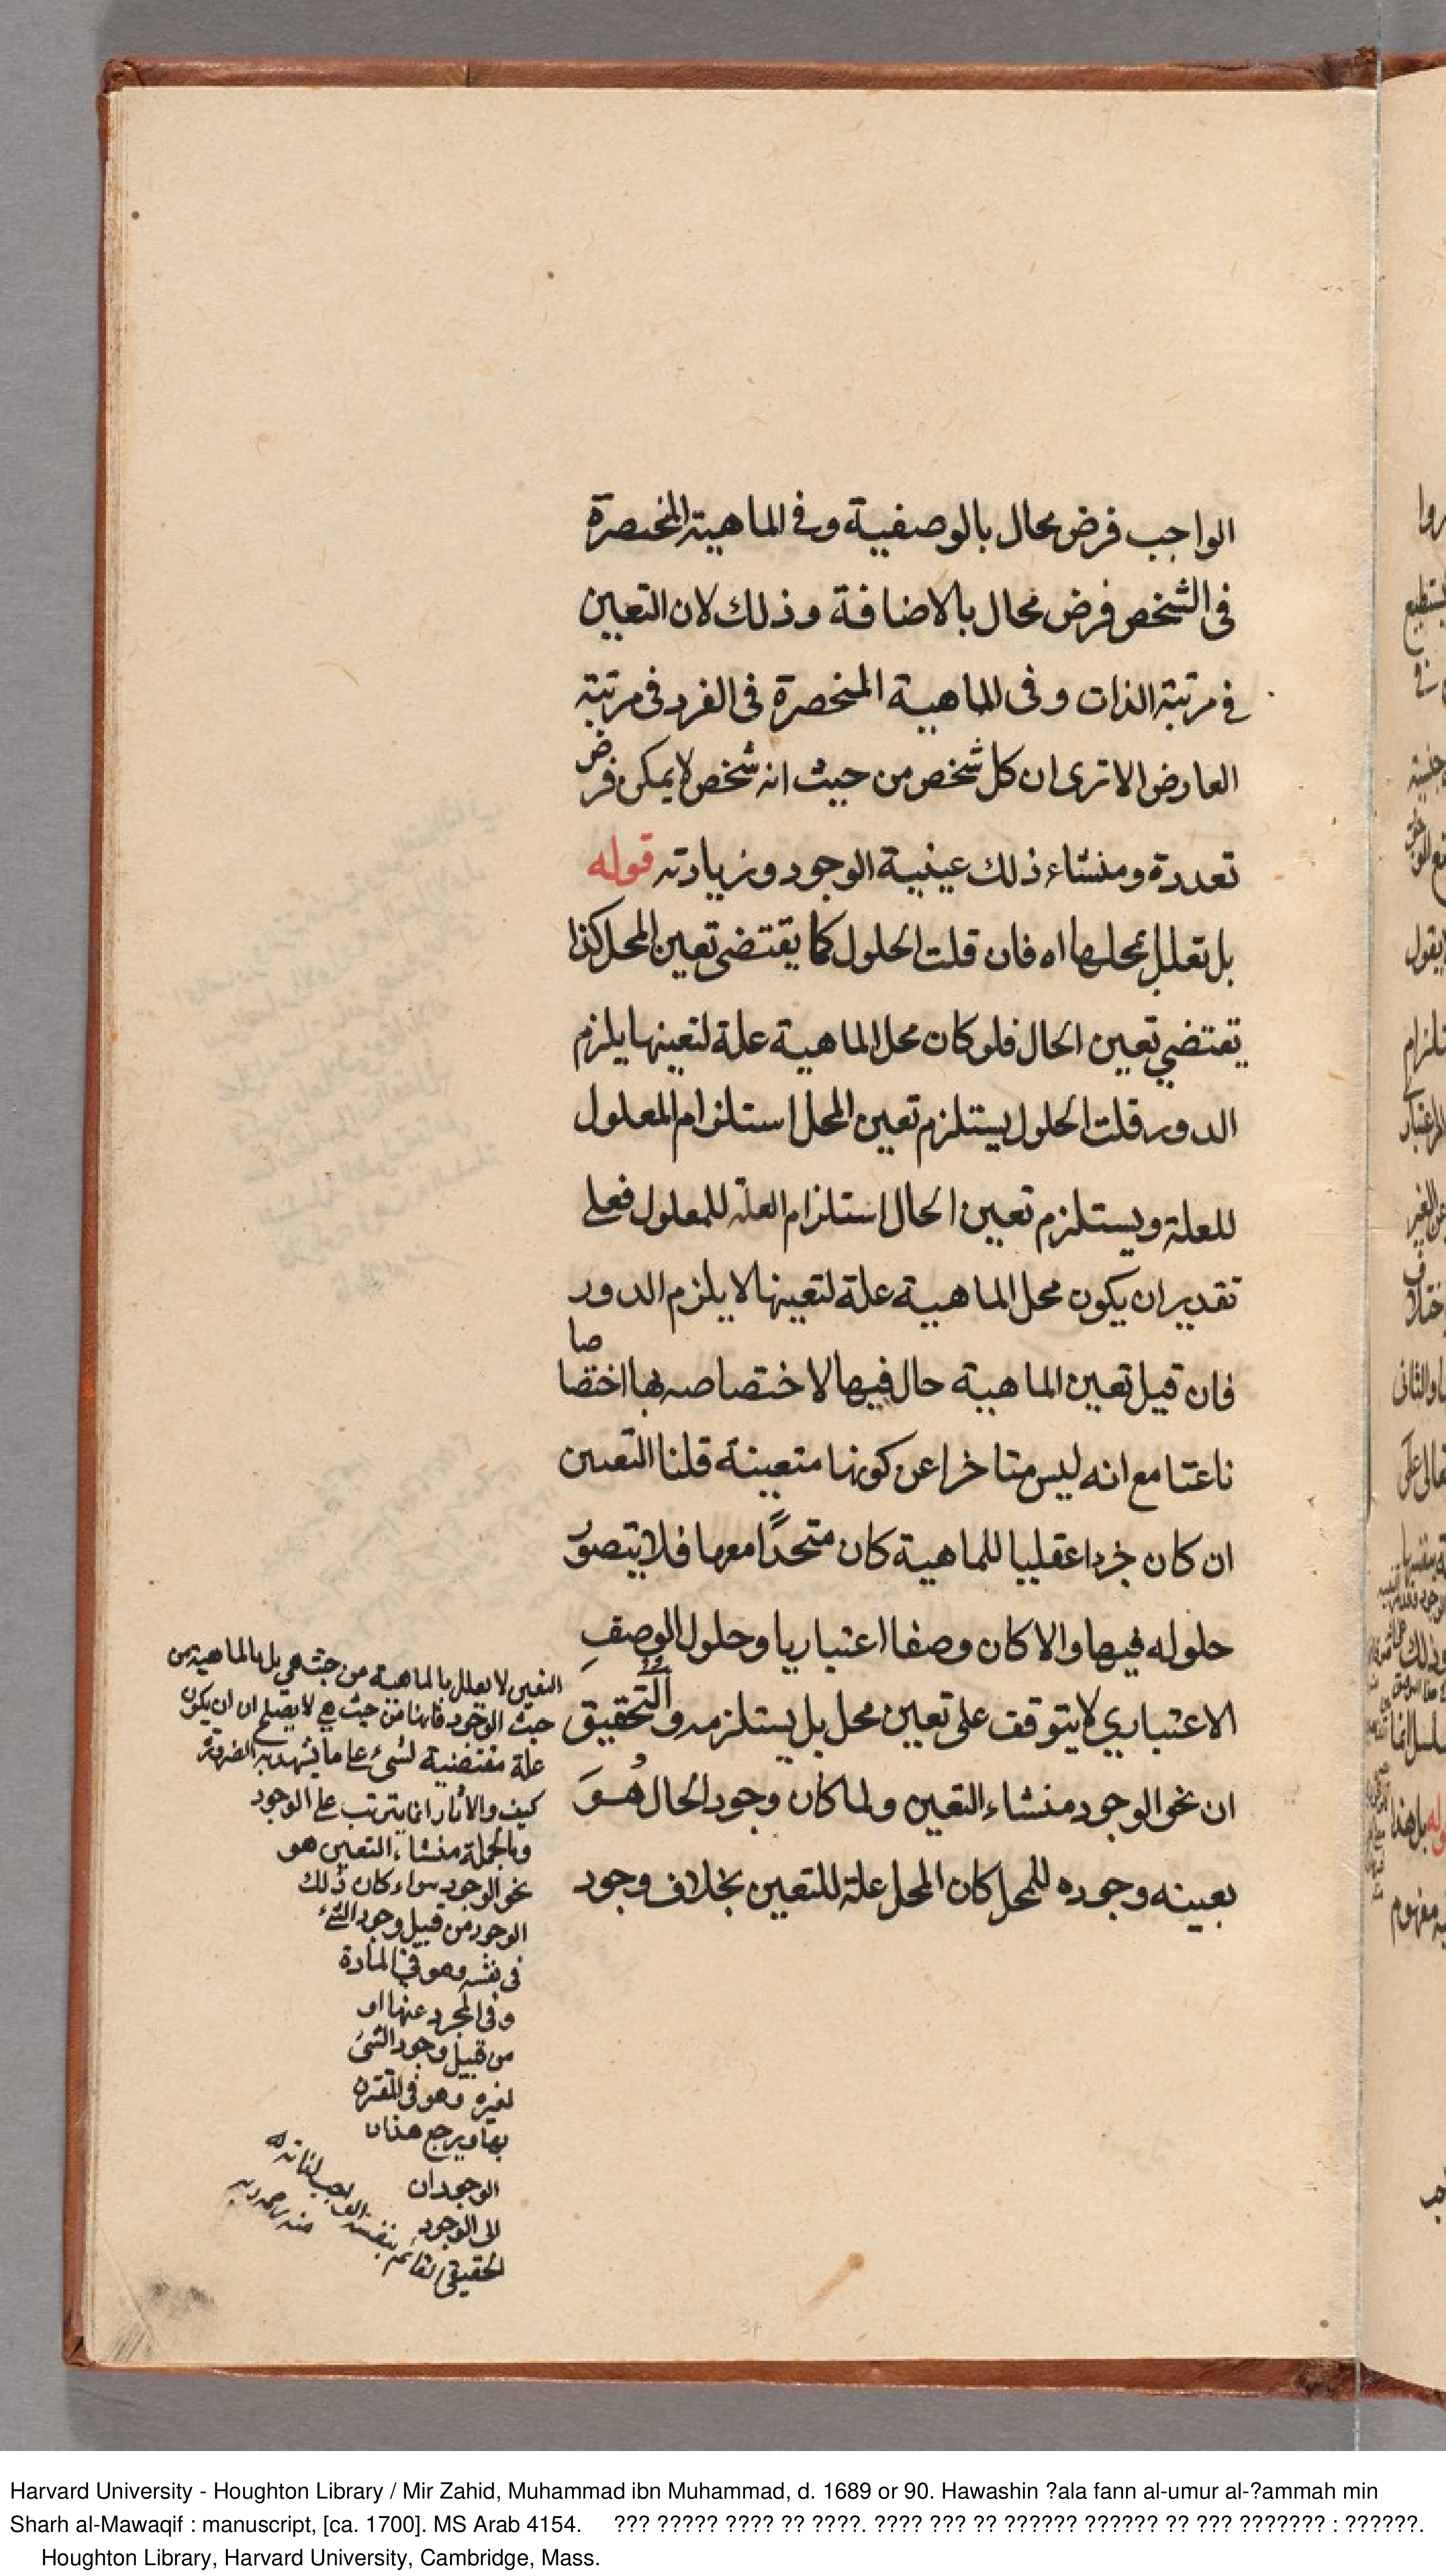 الواجب فرض محال بالوصفية وفي الماهية المنحصرة
في الشخص فرض محال بالاضافة وذلك لان التعين
في مرتبة الذات وفى الماهية المنحصرة فى الفرد فى مرتبة
العارض الا ترى ان كل شخص من حيث انه شخص لا يمكن فرض
تعدده ومنشاء ذلك عينية الوجود وزيادته قوله
بل تعلل بمحلها اه فان قلت الحلول كما يقتضى تعين المحل كذا
يقتضي تعين الحال فلو كان محل الماهية علة لتعينها يلزم
الدور قلت الحلول يستلزم تعين المحل استلزام المعلول
للعلة ويستلزم تعين الحال استلزام العلة للمعلول فعلى
تقدير ان يكون محل الماهية علة لتعينها لا يلزم الدور
فان قيل تعين الماهية حال فيها لاختصاصه بها اختصا صا
ناعتا مع انه ليس متاخرا عن كونها متعينة قلنا التعين
ان كان جزءا عقليا للماهية كان متحدًا معها فلا يتصور
حلوله فيها والا كان وصفا اعتباريا وحلول الوصف
الاعتباري لا يتوقف على تعين محل بل يستلزمه والتحقيق
ان نحو الوجود منشاء التعين ولما كان وجود الحال هو
بعينه وجوده للمحل كان المحل علة للتعين بخلاف وجود
التعين لا يعلل بالماهية من حيث هي بل بالماهية من
حيث الوجود فانها من حيث هي لا يصلح ان يكون
علة مقتضية لشيء على ما يشهد به الضرورة
كيف والاثار انما يترتب على الوجود
وبالجملة منشاء التعين هو
نحو الوجود سواء كان ذلك
الوجود من قبيل وجود الشيء
فى نفسه وهو في المادة
وفى المجرد عنها او
من قبيل وجود الشئ
لغيره وهو فى المقترن
بها ويرجع هذان
الوجودان
الى الوجود
الحقيقي القائم بنفسه الواجب لذاته
منه رحمه ربه
Harvard University - Houghton Library / Mir Zahid, Muhammad ibn Muhammad, d. 1689 or 90. Hawashin ?ala fann al-umur al-?ammah min
Sharh al-Mawaqif : manuscript, [ca. 1700]. MS Arab 4154. ??? ????? ???? ?? ????. ???? ??? ?? ?????? ?????? ?? ??? ??????? : ??????.
Houghton Library, Harvard University, Cambridge, Mass.